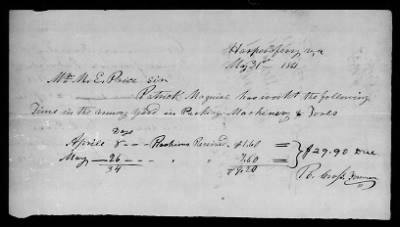 Harpers Ferry Va
May 31st 1861
Mr. M. E. Price Sir
Patrick Maguire has workt the following
Time in the armory yard in Packing Machenery & Tools
Days
Aprile 8 - - - Rashions Received $1.60 =
May - 26 - - " " 7.60 =
34 $9.20
$29.90 Due
R. Cross Foreman